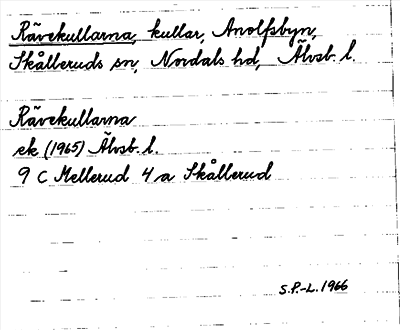 Rävekullarna, kullar, Anolfsbyn,
Skålleruds sn, Nordals hd, Älvsb. l.
Rävekullarna
ek (1965) Älvsb. l.
9 C Mellerud 4 a Skållerud
S.P.-L. 1966